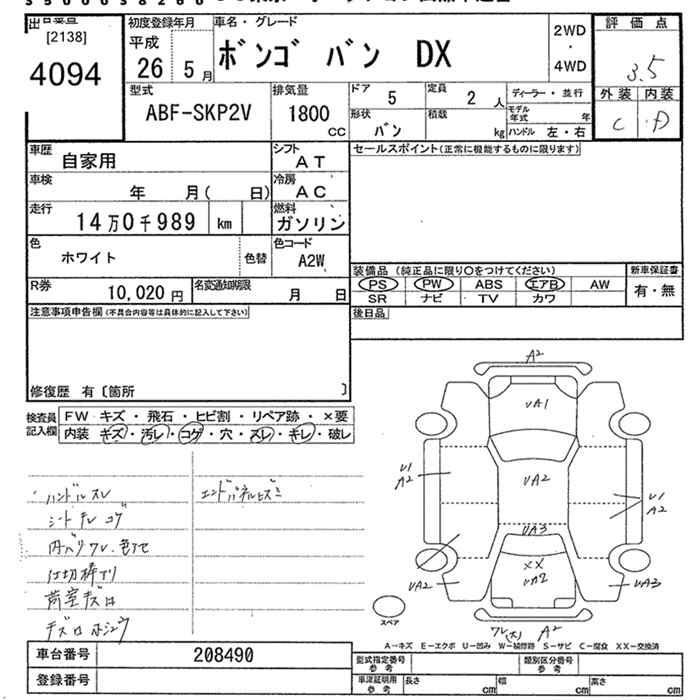 [2138]
4094
初度登録年月
平成
26 5月
車名・グレード
ボンゴ バン DX
2WD
・
4WD
評価点
3.5
外装 内装
C D
型式
ABF-SKP2V
排気量
1800
CC
ドア 5
定員 2 人
形状 バン
積載 kg
ディーラー・並行
モデル年式 年
ハンドル 左・右
車歴 自家用
シフト AT
セールスポイント(正常に機能するものに限ります)
車検 年 月( 日)
冷房 AC
走行 14万0千989 km
燃料 ガソリン
色 ホワイト 色替
色コード A2W
R券 10,020円
名変通知期限 月 日
装備品 (純正品に限り〇をつけてください)
PS PW ABS エアB AW
SR ナビ TV カワ
新車保証書
有・無
注意事項申告欄(不具合内容等は具体的に記入して下さい)
後日品
修復歴 有〔箇所 〕
検査員記入欄
FW キズ・飛石・ヒビ割・リペア跡・×要
内装 キズ・汚レ・コゲ・穴・スレ・キレ・破レ
ハンドルスレ
シート キレ コゲ
内バリワレ、色アセ
仕切枠アリ
荷室キズロ
A2
UA1
U1
A2
UA2
U1
A2
UA3
XX
UA2
UA2
UA3
ワレ(大) A2
スペア
A-キズ E-エクボ U-凹み W-補修跡 S-サビ C-腐食 XX-交換済
車台番号 208490
登録番号
型式指定番号
参考
類別区分番号
参考
車庫証明用
参考
長さ cm 幅 cm 高さ cm